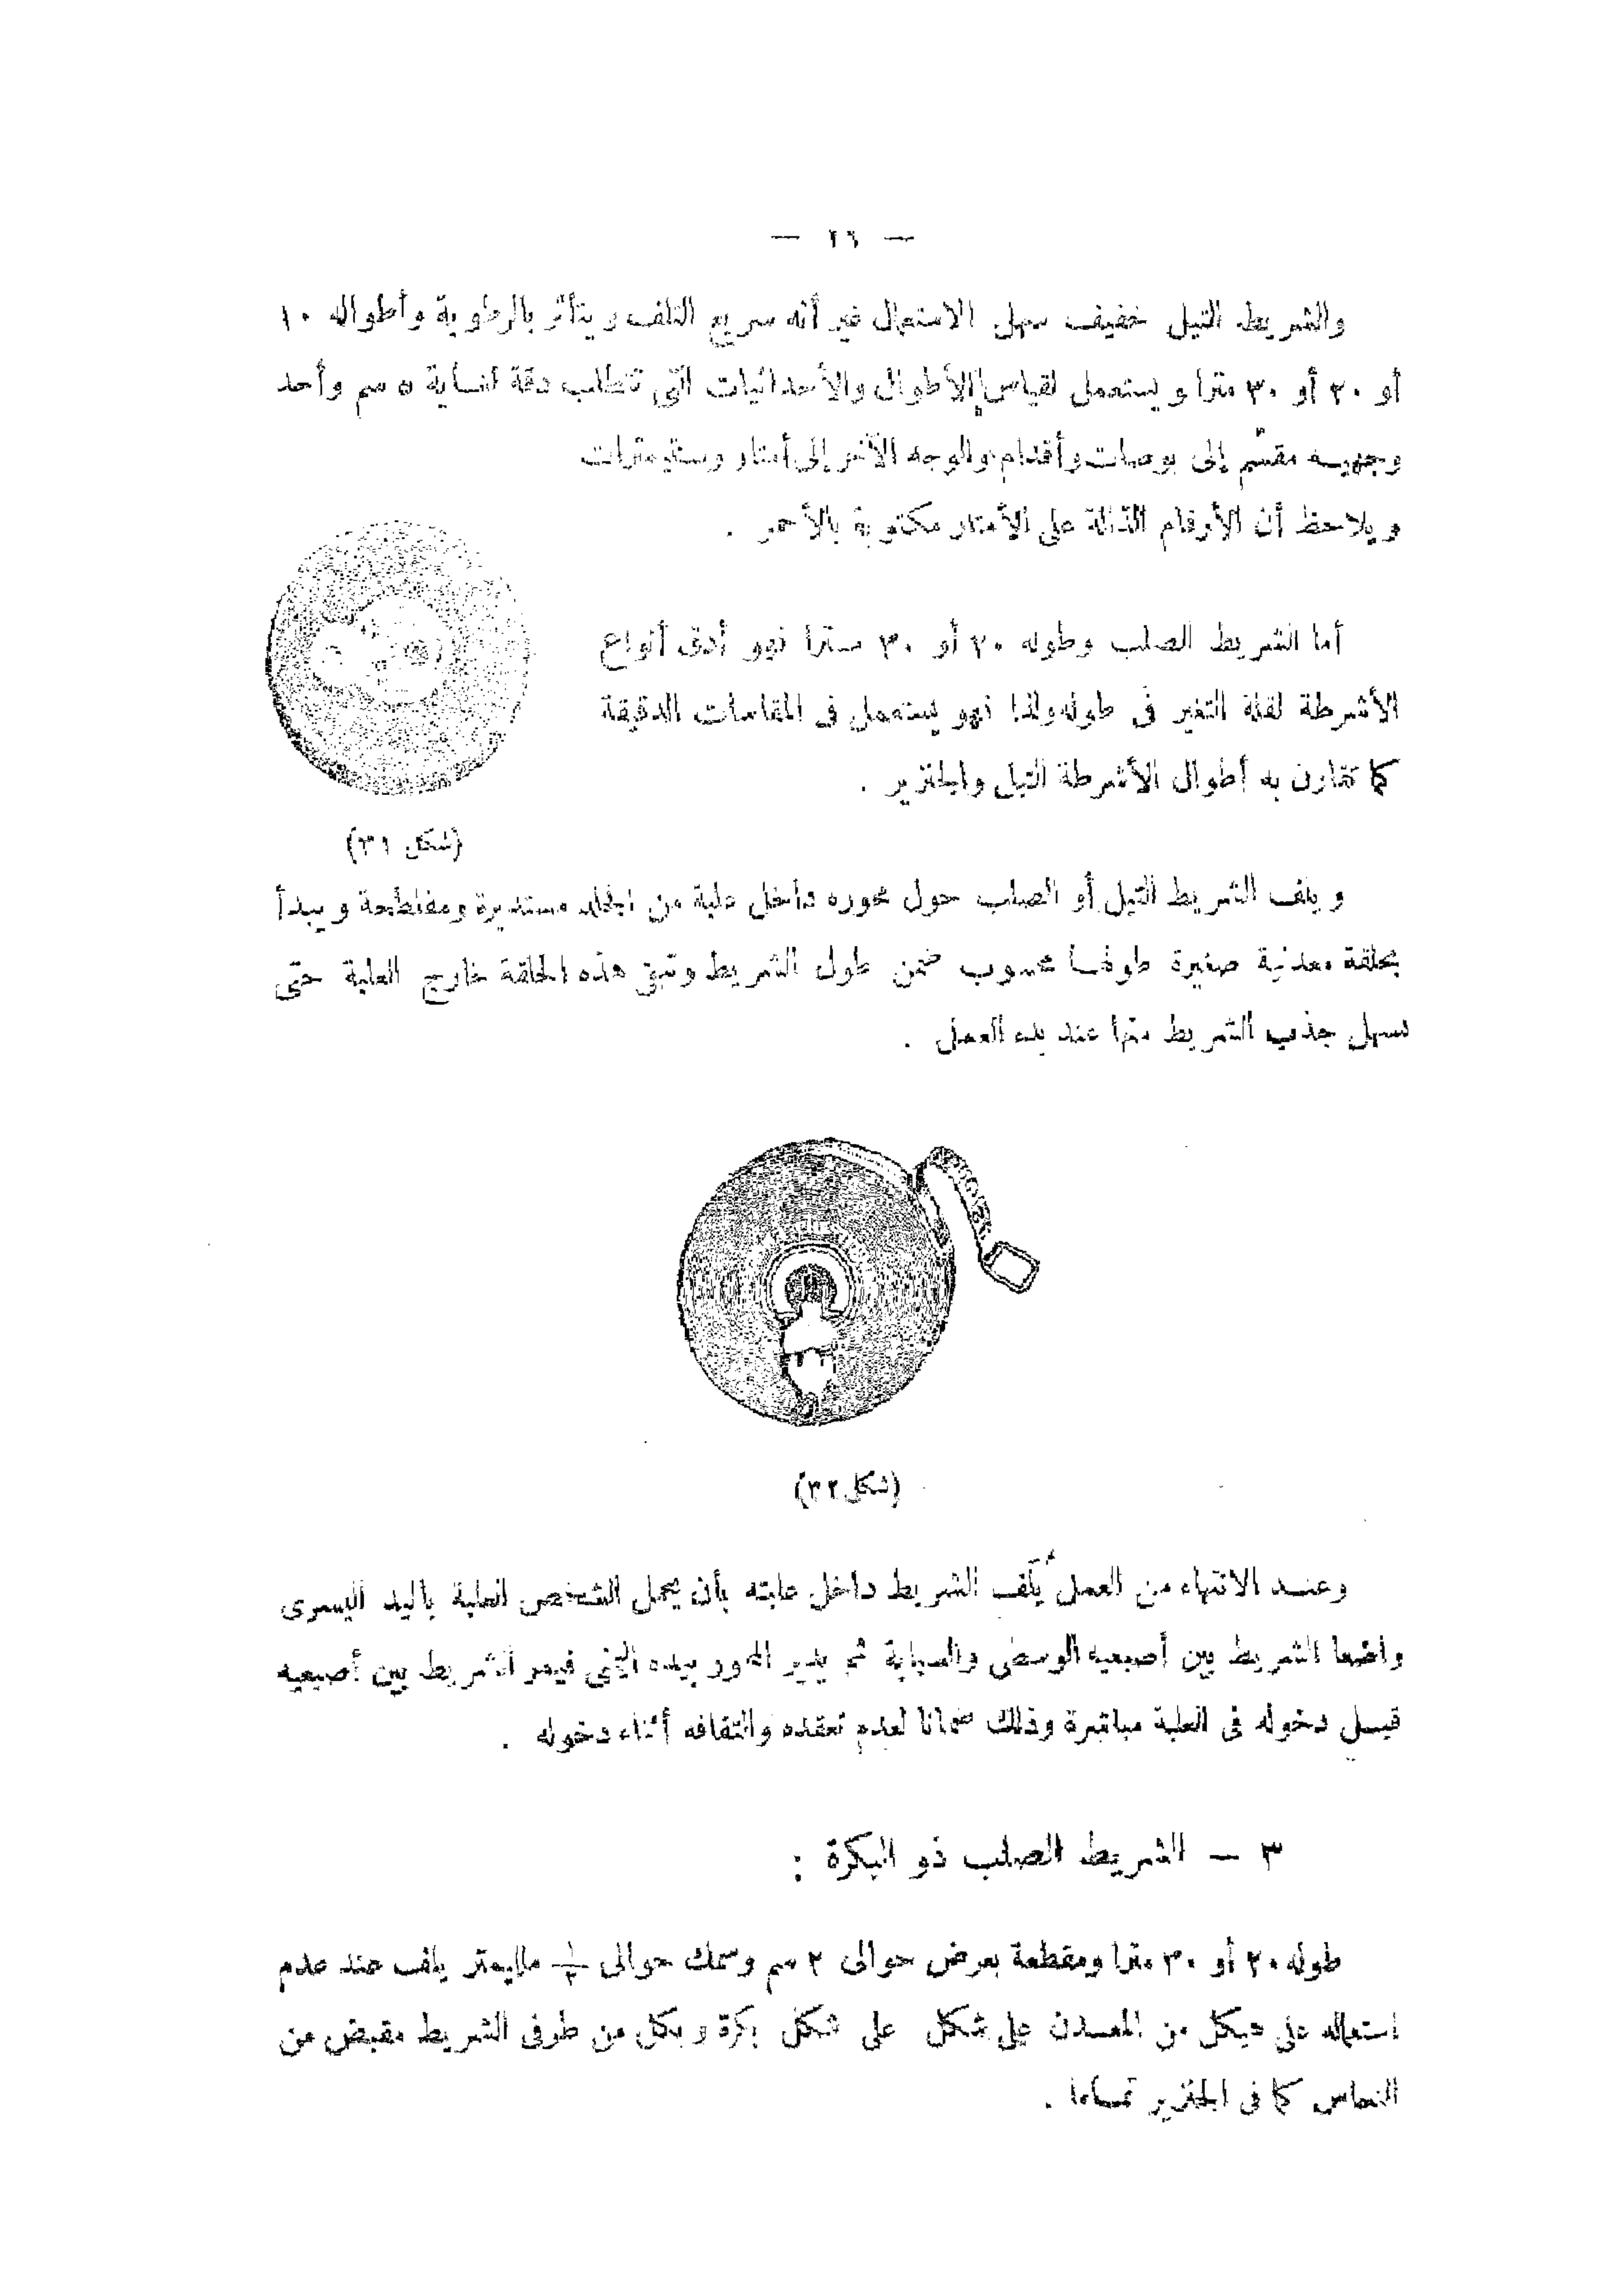 — ٢٦ —
والشريط التيل خفيف سهل الاستعمال غير أنه سريع التلف ويتأثر بالرطوبة وأطواله ١٠
أو ٢٠ أو ٣٠ مترا ويستعمل لقياس الأطوال والأحداثيات التى تتطلب دقة لغاية ٥ سم وأحد
وجهيه مقسّم إلى بوصات وأقدام والوجه الآخر إلى أمتار وسنتيمترات
ويلاحظ أن الأرقام الدالة على الأمتار مكتوبة بالأحمر .
أما الشريط الصلب وطوله ٢٠ أو ٣٠ مترا فهو أدق أنواع
الأشرطة لقلة التغير فى طوله ولذا فهو يستعمل فى المقاسات الدقيقة
كما تقارن به أطوال الأشرطة التيل والجنزير .
(شكل ٣١)
ويلف الشريط التيل أو الصلب حول محوره داخل علبة من الجلد مستديرة ومفلطحة ويبدأ
بحلقة معدنية صغيرة طولها محسوب ضمن طول الشريط وتبقى هذه الحلقة خارج العلبة حتى
سهل جذب الشريط منها عند بدء العمل .
(شكل ٣٢)
وعند الانتهاء من العمل يُلف الشريط داخل علبته بأن يحمل الشخص العلبة باليد اليسرى
واضعا الشريط بين أصبعيه الوسطى والسبابة ثم يدير المحور بيده اليمنى فيمر الشريط بين أصبعيه
قبل دخوله فى العلبة مباشرة وذلك ضمانا لعدم تعقده والتفافه أثناء دخوله .
٣ — الشريط الصلب ذو البكرة :
طوله ٢٠ أو ٣٠ مترا ومقطعة بعرض حوالى ٢ سم وسمك حوالى ملليمتر يلف عند عدم
استعماله على هيكل من المعدن على شكل على شكل بكرة وبكل من طرفى الشريط مقبض من
النحاس كما فى الجنزير تماما .